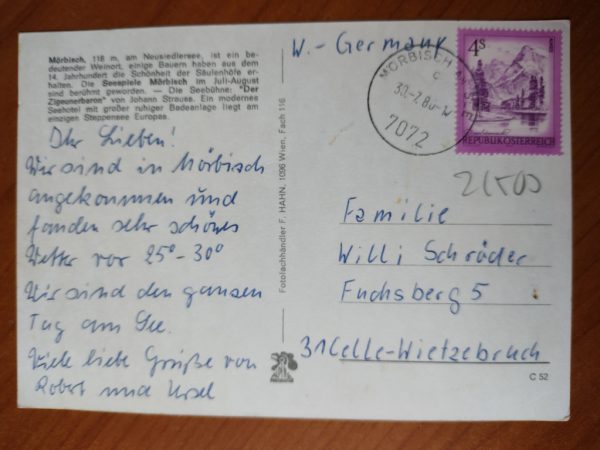 Mörbisch, 118 m, am Neusiedlersee, ist ein be-
deutender Weinort, einige Bauern haben aus dem
14. Jahrhundert die Schönheit der Säulenhöfe er-
halten. Die Seespiele Mörbisch im Juli-August
sind berühmt geworden. — Die Seebühne: "Der
Zigeunerbaron" von Johann Strauss. Ein modernes
Seehotel mit großer ruhiger Badeanlage liegt am
einzigen Steppensee Europas.
Ihr Lieben!
Wir sind in Mörbisch
angekommen und
fanden sehr schönes
Wetter vor 25° - 30°
Wir sind den ganzen
Tag am See.
Viele liebe Grüße von
Robert und Ursel
Fotolachhändler F. HAHN, 1096 Wien, Fach 116
W.- Germany
MÖRBISCH AM SEE
c
30.-7.80
7072
4S
REPUBLIK ÖSTERREICH
Familie
Willi Schröder
Fuchsberg 5
31 Celle-Wietzebruch
C 52